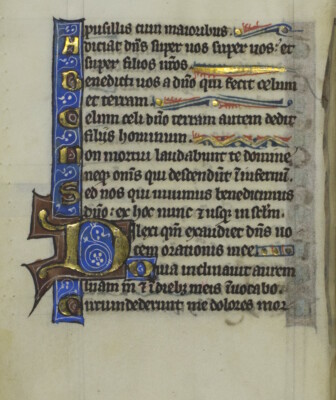 pusillis cum maioribus.
Adiciat dn̄s super uos super uos: et
super filios ur̄os.
Benedicti uos a dn̄o qui fecit celum
et terram.
Celum celi dn̄o terram autem dedit
filiis hominum.
Non mortui laudabunt te domine,
neqꝫ om̄s qui descendūt ī infernū.
Sed nos qui uiuimus benedicimus
dn̄o: ex hoc nunc ⁊ usqꝫ in sc̄lm.
Dilexi qm̄ exaudiet dn̄s uo
cem orationis mee.
Quia inclinauit aurem
suam m̄ ⁊ ī diebꝫ meis īuocabo.
Circumdederunt me dolores mor